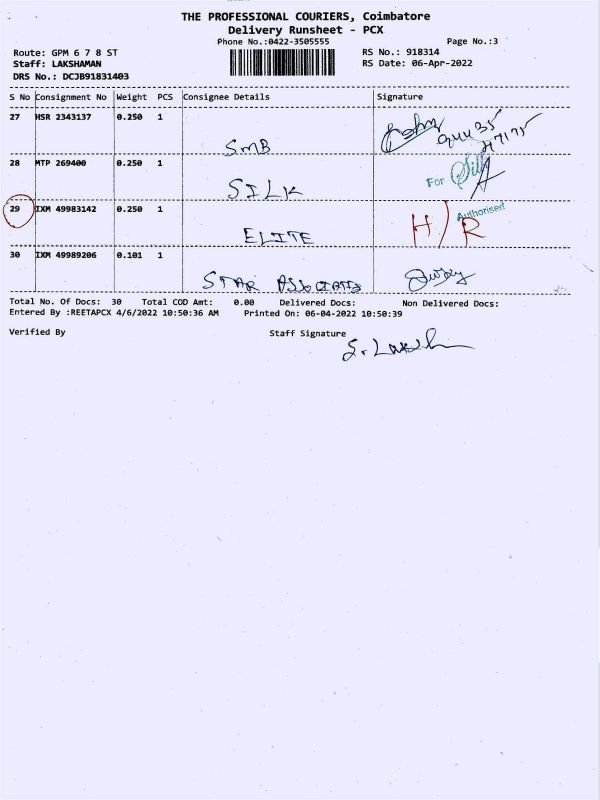 THE PROFESSIONAL COURIERS, Coimbatore
Delivery Runsheet - PCX
Phone No.:0422-3505555
Page No.:3
Route: GPM 6 7 8 ST
RS No.: 918314
Staff: LAKSHAMAN
RS Date: 06-Apr-2022
DRS No.: DCJB91831403
S No Consignment No Weight PCS Consignee Details Signature
27 HSR 2343137 0.250 1
SMB
28 MTP 269400 0.250 1
SILK
For Silk
29 IXM 49983142 0.250 1
ELITE
H/R
Authorised
30 IXM 49989206 0.101 1
STAR ASSOCIATES
Total No. Of Docs: 30 Total COD Amt: 0.00 Delivered Docs: Non Delivered Docs:
Entered By :REETAPCX 4/6/2022 10:50:36 AM Printed On: 06-04-2022 10:50:39
Verified By Staff Signature